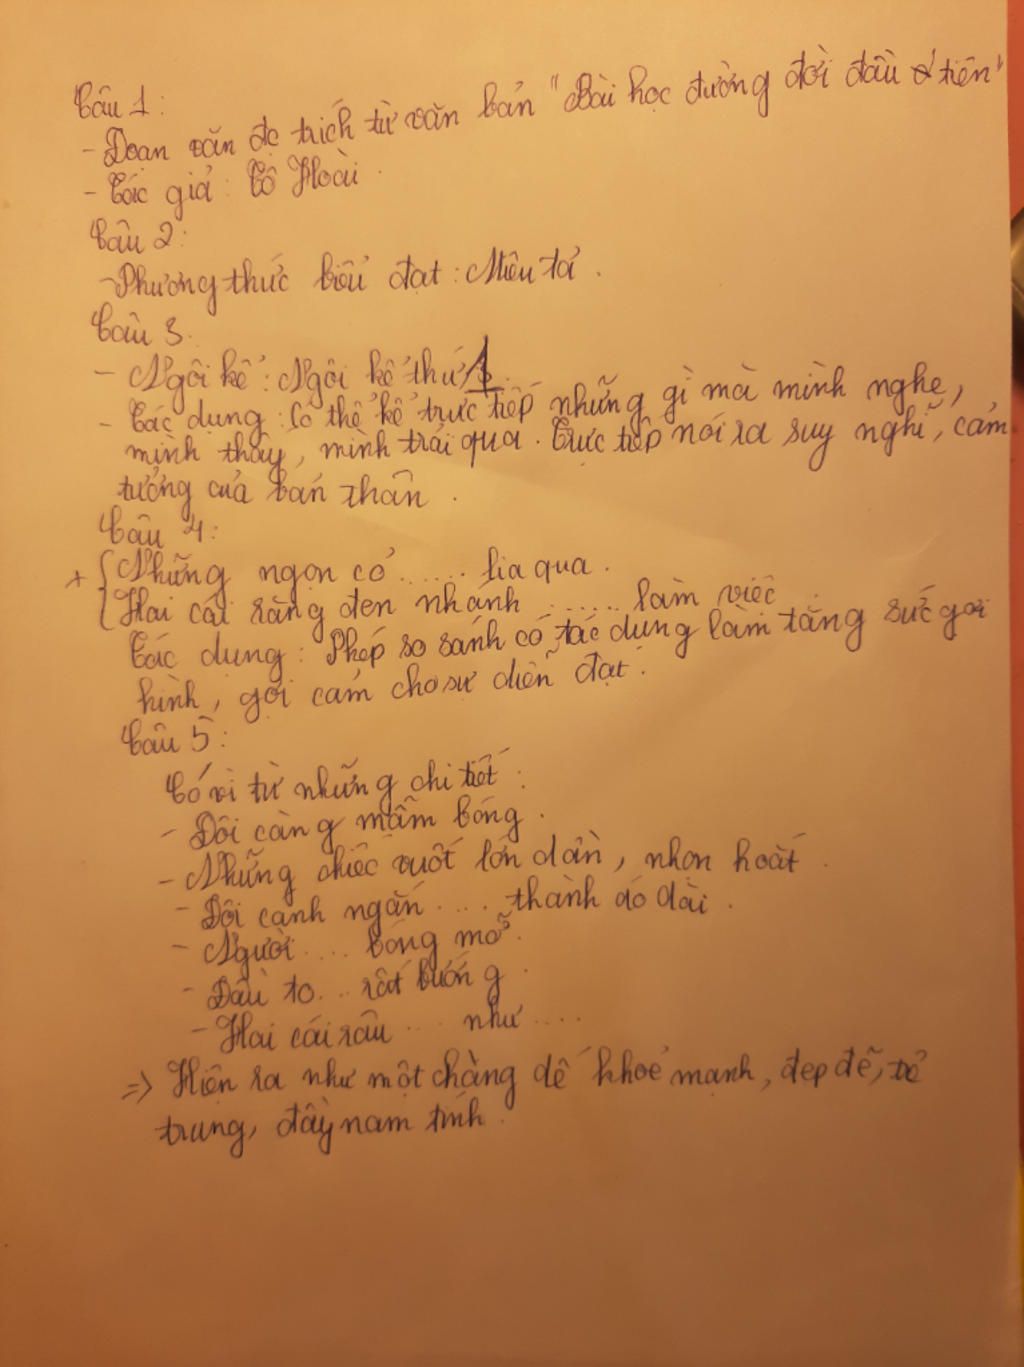 Câu 1:
- Đoạn văn đc trích từ văn bản "Bài học đường đời đầu tiên"
- Tác giả: Tô Hoài.
Câu 2:
- Phương thức biểu đạt: Miêu tả.
Câu 3.
- Ngôi kể: Ngôi kể thứ 1.
- Tác dụng: Có thể kể trực tiếp những gì mà mình nghe,
mình thấy, mình trải qua. Trực tiếp nói ra suy nghĩ, cảm
tưởng của bản thân.
Câu 4:
+ Những ngọn cỏ ...... lia qua.
Hai cái răng đen nhánh ...... làm việc
Tác dụng: Phép so sánh có tác dụng làm tăng sức gợi
hình, gợi cảm cho sự diễn đạt.
Câu 5:
Có vì từ những chi tiết:
- Đôi càng mẫm bóng.
- Những chiếc vuốt lớn dần, nhọn hoắt.
- Đôi cánh ngắn .... thành áo dài.
- Người .... bóng mỡ.
- Đầu to... rất bướng.
- Hai cái râu .... như ....
=> Hiện ra như một chàng dế khoẻ mạnh, đẹp đẽ, trẻ
trung, đầy nam tính.